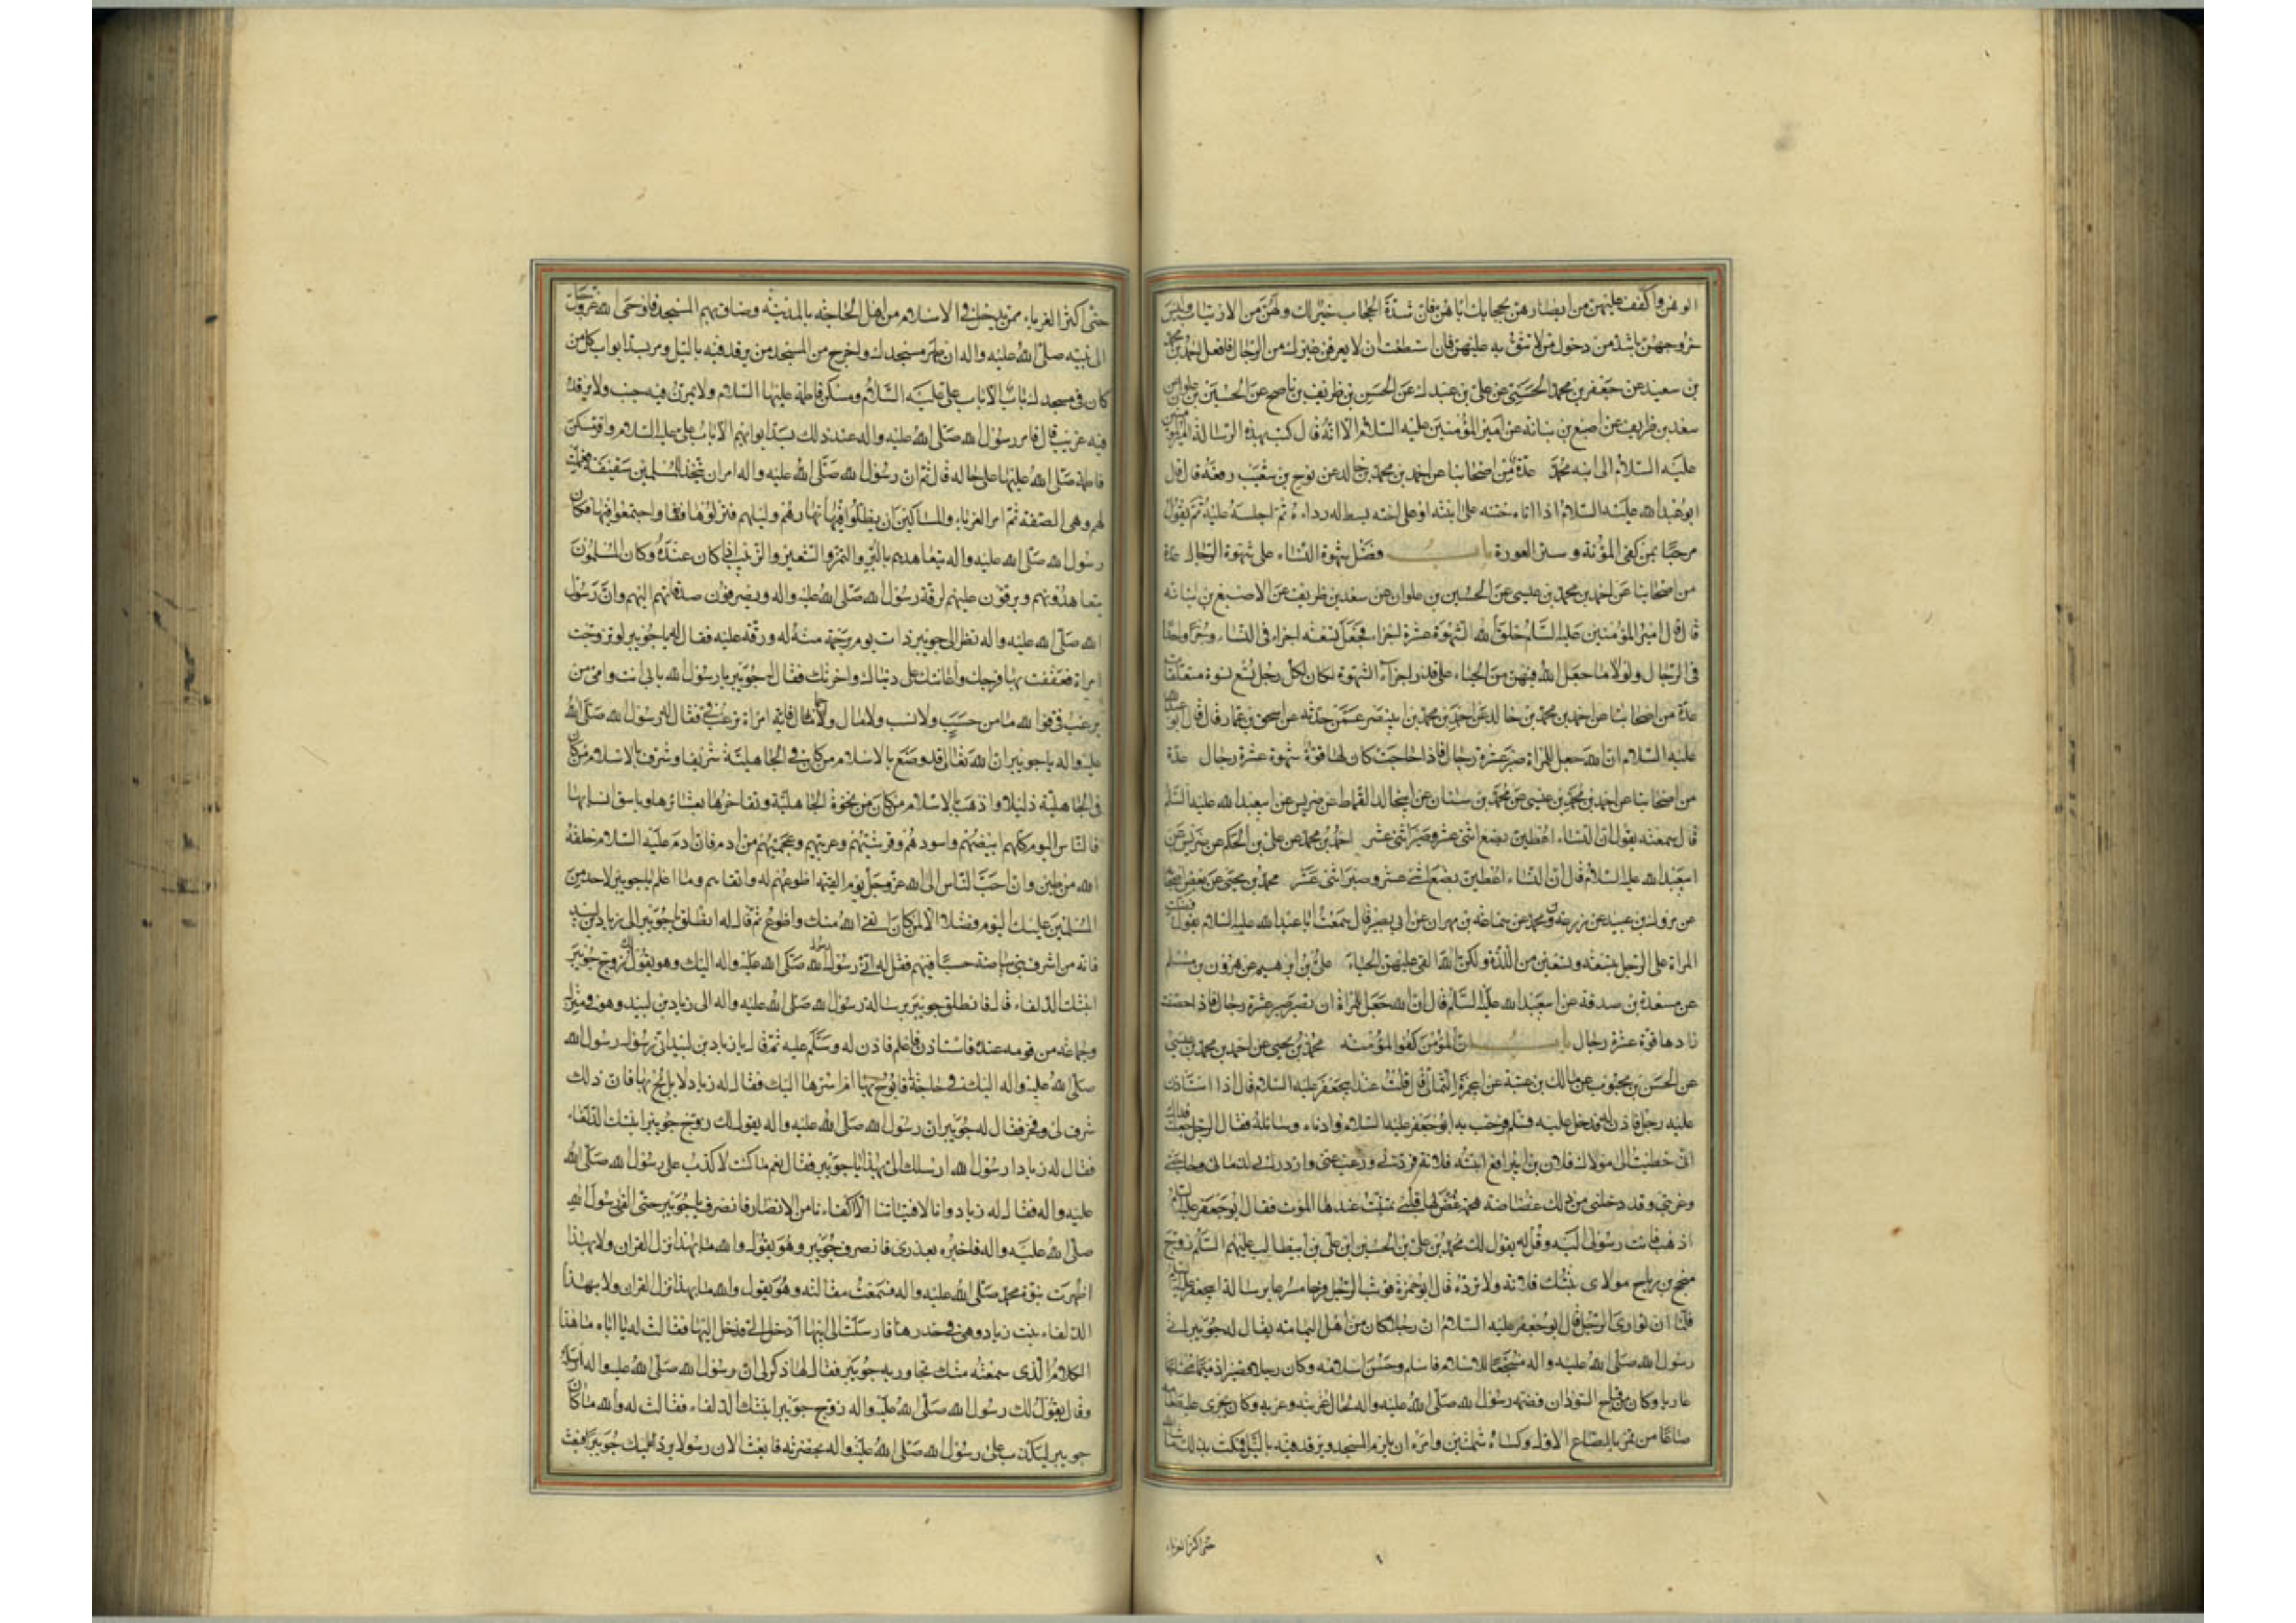 الوهن واكفف عليهن من ابصارهن بحجابك اياهن فان شدة الحجاب خير لك ولهن من الارتياب وليس
خروجهن باشد من دخول من لا تثق به عليهن فان استطعت ان لا يعرفن غيرك من الرجال فافعل احمد بن محمد
بن سعيد عن جعفر بن محمد الحسيني عن علي بن عبدك عن الحسن بن ظريف بن ناصح عن الحسين بن علوان عن
سعد بن ظريف عن اصبغ بن نباتة عن امير المؤمنين عليه السلام الا انه قال كتب بهذه الرسالة امير المؤمنين
عليه السلام الى ابنه محمد عدة من اصحابنا عن احمد بن محمد بن خالد عن نوح بن شعيب رفعه قال قال
ابو عبد الله عليه السلام اذا اتاه ختنه على ابنته او على اخته بسط له رداءه ثم اجلسه عليه ثم يقول
مرحبا بمن كفى المؤنة وستر العورة باب فضل شهوة النساء على شهوة الرجال عدة
من اصحابنا عن احمد بن محمد بن عيسى عن الحسين بن علوان عن سعد بن ظريف عن الاصبغ بن نباته
قال قال امير المؤمنين عليه السلام خلق الله الشهوة عشرة اجزاء فجعل تسعة اجزاء في النساء وجزءا واحدا
في الرجال ولولا ما جعل الله فيهن من الحياء على قدر اجزاء الشهوة لكان لكل رجل تسع نسوة متعلقات
عدة من اصحابنا عن احمد بن محمد بن خالد عن احمد بن محمد بن ابي نصر عمن حدثه عن اسحق بن عمار قال قال ابو عبد الله
عليه السلام ان الله جعل للمراة صبر عشرة رجال فاذا هاجت كان لها قوة شهوة عشرة رجال عدة
من اصحابنا عن احمد بن محمد بن عيسى عن محمد بن سنان عن ابي خالد القماط عن ضريس عن ابي عبد الله عليه السلم
قال سمعته يقول ان النساء اعطين بضع اثني عشر وصبر اثني عشر احمد بن محمد عن علي بن الحكم عن ضريس عن
ابي عبد الله عليه السلام قال ان النساء اعطين بضع اثني عشر وصبر اثني عشر محمد بن يحيى عن بعض اصحابنا
عن مروك بن عبيد عن زرعة بن محمد عن سماعة بن مهران عن ابي بصير قال سمعت ابا عبد الله عليه السلام يقول فضلت
المراة على الرجل بتسعة وتسعين من اللذة ولكن الله القى عليهن الحياء علي بن ابرهيم عن هرون بن مسلم
عن مسعدة بن صدقة عن ابي عبد الله عليه السلم قال ان الله جعل للمراة ان تصبر صبر عشرة رجال فاذا حصنت
زادها قوة عشرة رجال باب ان المؤمن كفو المؤمنة محمد بن يحيى عن احمد بن محمد بن عيسى
عن الحسن بن محبوب عن مالك بن عطية عن ابي حمزة الثمالي قال كنت عند ابي جعفر عليه السلام قال اذا استاذن
عليه رجل فاذن له فدخل عليه فسلم فرحب به ابو جعفر عليه السلام وادناه وسائله فقال الرجل جعلت فداك
اني خطبت الى مولاك فلان بن ابي رافع ابنته فلانة فردني ورغب عني وازدراني لدمامتي وحاجتي
وغربتي وقد دخلني من ذلك غضاضة هجمة غض لها قلبي تمنيت عندها الموت فقال ابو جعفر عليه السلم
اذهب فانت رسولي اليه وقل له يقول لك محمد بن علي بن الحسين ابن علي بن ابي طالب عليهم السلم زوج
منجح بن رباح مولاي بنتك فلانة ولا ترده قال ابو حمزة فوثب الرجل فرحا مسرعا برسالة ابي جعفر عليه السلم
فلما ان توارى الرجل قال ابو جعفر عليه السلام ان رجلا كان من اهل اليمامة يقال له جويبر اتى
رسول الله صلى الله عليه واله منتجعا للاسلام فاسلم وحسن اسلامه وكان رجلا قصيرا دميما محتاجا
عاريا وكان من قباح السودان فضمه رسول الله صلى الله عليه واله لحال غربته وعريه وكان يجري عليه طعامه
صاعا من تمر بالصاع الاول وكساه شملتين وامره ان يلزم المسجد ويرقد فيه بالليل فمكث بذلك ما شاء الله
حتى اكثر الغرباء
حتى اكثر الغرباء ممن يدخل في الاسلام من اهل الحاجة بالمدينة وضاق بهم المسجد فاوحى الله عز وجل
الى نبيه صلى الله عليه واله ان طهر مسجدك واخرج من المسجد من يرقد فيه بالليل ومر بسد ابواب كل من
كان في مسجدك باب الا باب علي عليه السلام ومسكن فاطمة عليها السلام ولا يمرن فيه جنب ولا يرقد
فيه غريب قال فامر رسول الله صلى الله عليه واله عند ذلك بسد ابوابهم الا باب علي عليه السلام واقر مسكن
فاطمة صلى الله عليها على حاله قال ثم ان رسول الله صلى الله عليه واله امر ان يتخذ للمسلمين سقيفة فعملت
لهم وهي الصفة ثم امر الغرباء والمساكين ان يظلوا فيها نهارهم وليلهم فنزلوها واجتمعوا فيها فكان
رسول الله صلى الله عليه واله يتعاهدهم بالبر والتمر والشعير والزبيب اذا كان عنده وكان المسلمون
يتعاهدونهم ويرقون عليهم لرقة رسول الله صلى الله عليه واله ويصرفون صدقاتهم اليهم وان رسول
الله صلى الله عليه واله نظر الى جويبر ذات يوم برحمة منه له ورقة عليه فقال له يا جويبر لو تزوجت
امراة فعففت بها فرجك واعانتك على دنياك واخرتك فقال له جويبر يا رسول الله بابي انت وامي من
يرغب في فوالله ما من حسب ولا نسب ولا مال ولا جمال فاية امراة ترغب في فقال له رسول الله صلى الله
عليه واله يا جويبر ان الله تعالى قد وضع بالاسلام من كان في الجاهلية شريفا وشرف بالاسلام من كان
في الجاهلية ذليلا واذهب بالاسلام من كان من نخوة الجاهلية وتفاخرها بعشائرها وباسق انسابها
فالناس اليوم كلهم ابيضهم واسودهم وقرشيهم وعربيهم وعجميهم من ادم فان ادم عليه السلام خلقه
الله من طين وان احب الناس الى الله عز وجل يوم القيمة اطوعهم له واتقاهم وما اعلم يا جويبر لاحد من
المسلمين عليك اليوم فضلا الا لمن كان اتقى الله منك واطوع ثم قال له انطلق يا جويبر الى زياد بن لبيد
فانه من اشرف بني بياضة حسبا فيهم فقل له اني رسول رسول الله صلى الله عليه واله اليك وهو يقول لك زوج جويبر
ابنتك الذلفاء قال فانطلق جويبر برسالة رسول الله صلى الله عليه واله الى زياد بن لبيد وهو في منزله
وجماعة من قومه عنده فاستاذن فاعلم فاذن له وسلم عليه ثم قال يا زياد بن لبيد اني رسول رسول الله
صلى الله عليه واله اليك في حاجة فابوح بها ام اسرها اليك فقال له زياد لا بل بح بها فان ذلك
شرف لي وفخر فقال له جويبر ان رسول الله صلى الله عليه واله يقول لك زوج جويبرا ابنتك الذلفاء
فقال له زياد ا رسول الله ارسلك الي بهذا يا جويبر فقال نعم ما كنت لاكذب على رسول الله صلى الله
عليه واله فقال له زياد وانا لا فتياتنا الا اكفاءنا من الانصار فانصرف يا جويبر حتى القى رسول الله
صلى الله عليه واله فاخبره بعذري فانصرف جويبر وهو يقول والله ما بهذا نزل القران ولا بهذا
اظهرت نبوة محمد صلى الله عليه واله فسمعت مقالته وهو يقول والله ما بهذا نزل القران ولا بهذا
الذلفاء بنت زياد وهي في خدرها فارسلت الى ابيها ادخل الي فدخل اليها فقالت له يا اباه ما هذا
الكلام الذي سمعته منك تحاور به جويبر فقال لها ذكر لي ان رسول الله صلى الله عليه واله ارسله
وقال يقول لك رسول الله صلى الله عليه واله زوج جويبرا ابنتك الذلفاء فقالت له والله ما كان
جويبر ليكذب على رسول الله صلى الله عليه واله بحضرته فابعث الان رسولا يرد عليك جويبرا فبعث